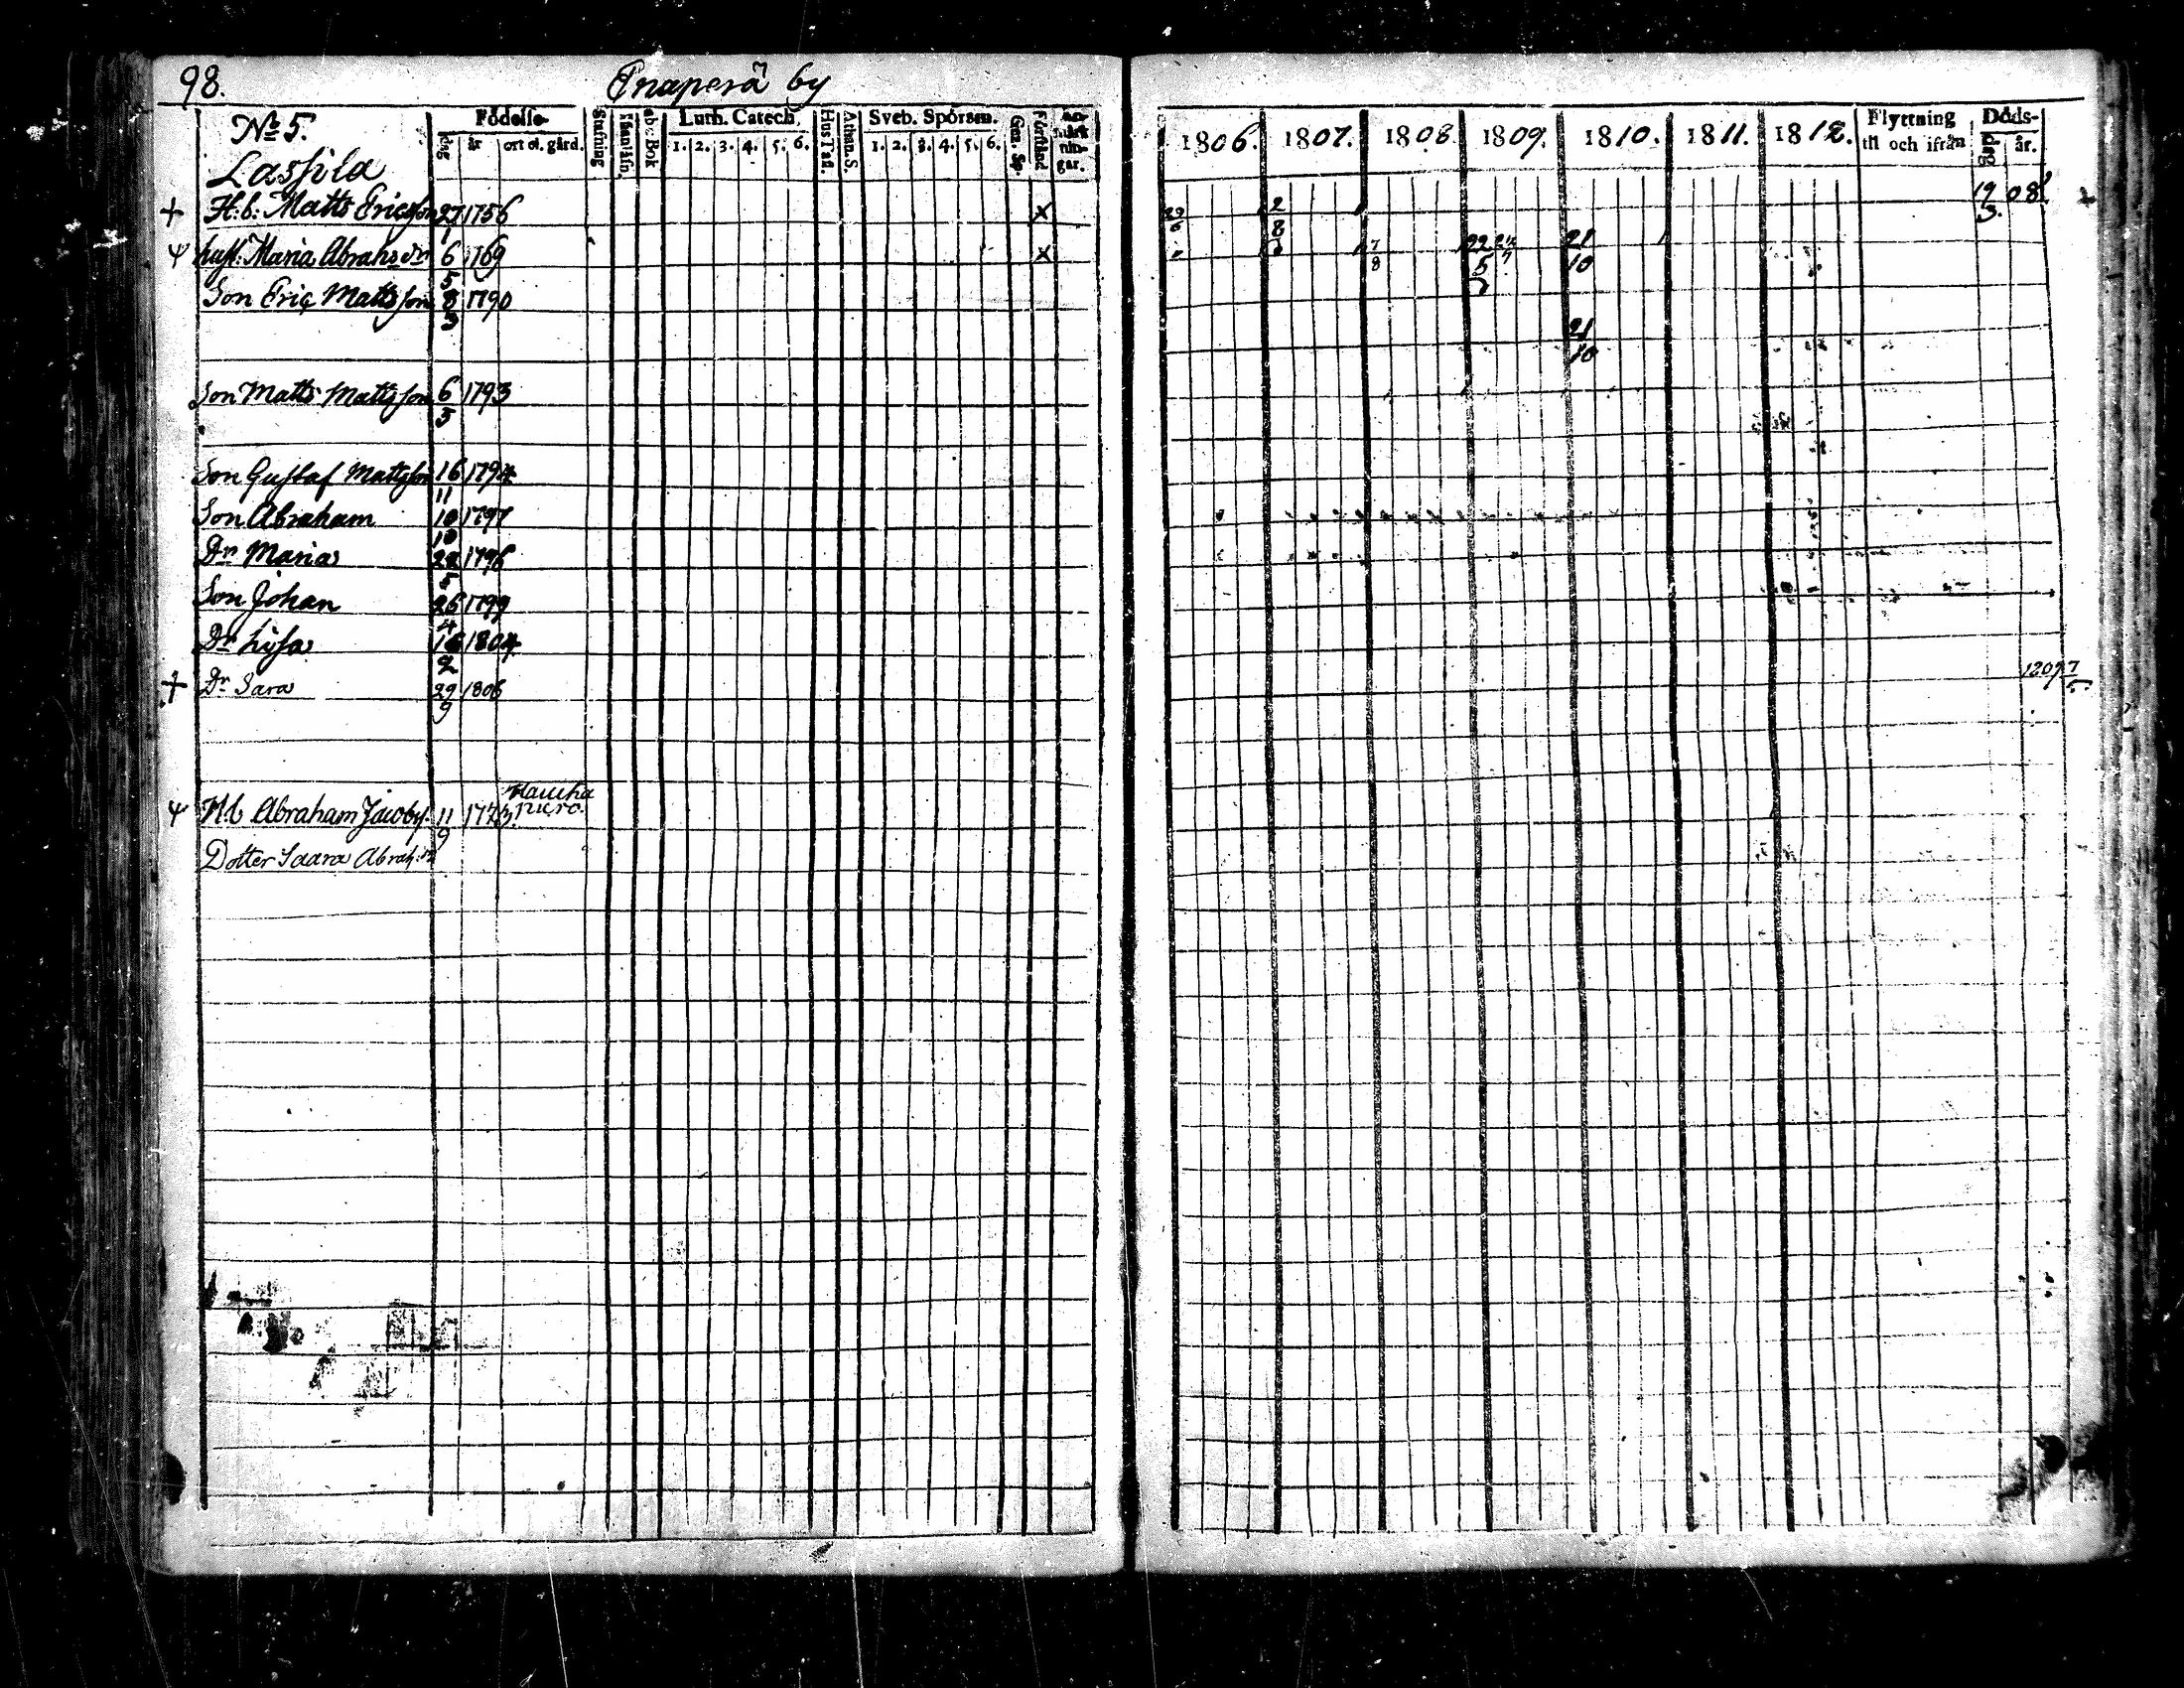 98. Enaperä by
No 5. Födelse- Stafning abc Bok Luth. Catech. Hus Tafl. Athan. S. Sveb. Spörsm. Förstånd
dag år ort ol. gård. 1. 2. 3. 4. 5. 6. 1. 2. 3. 4. 5. 6.
1806. 1807. 1808. 1809. 1810. 1811. 1812. Flyttning till och ifrån Döds- dag år.
Lassila
+ H.b: Matts Ericsson 27/1 1756 X 2/8 19/3 08
hust. Maria Abrahsdr 6/5 1769 X 7/8 22/5 21/10
Son Eric Mattsson 8/3 1790 21/10
Son Matts Mattsson 6/5 1793
Son Gustaf Mattsson 16/11 1794
Son Abraham 10/10 1797
Dr Maria 22/5 1796
Son Johan 26/4 1799
Dr Lisa 16/2 1804
+ Dr Sara 29/9 1806 1809
H.b Abraham Jacobs. 11/9 1773.
Dotter Saara Abrah: